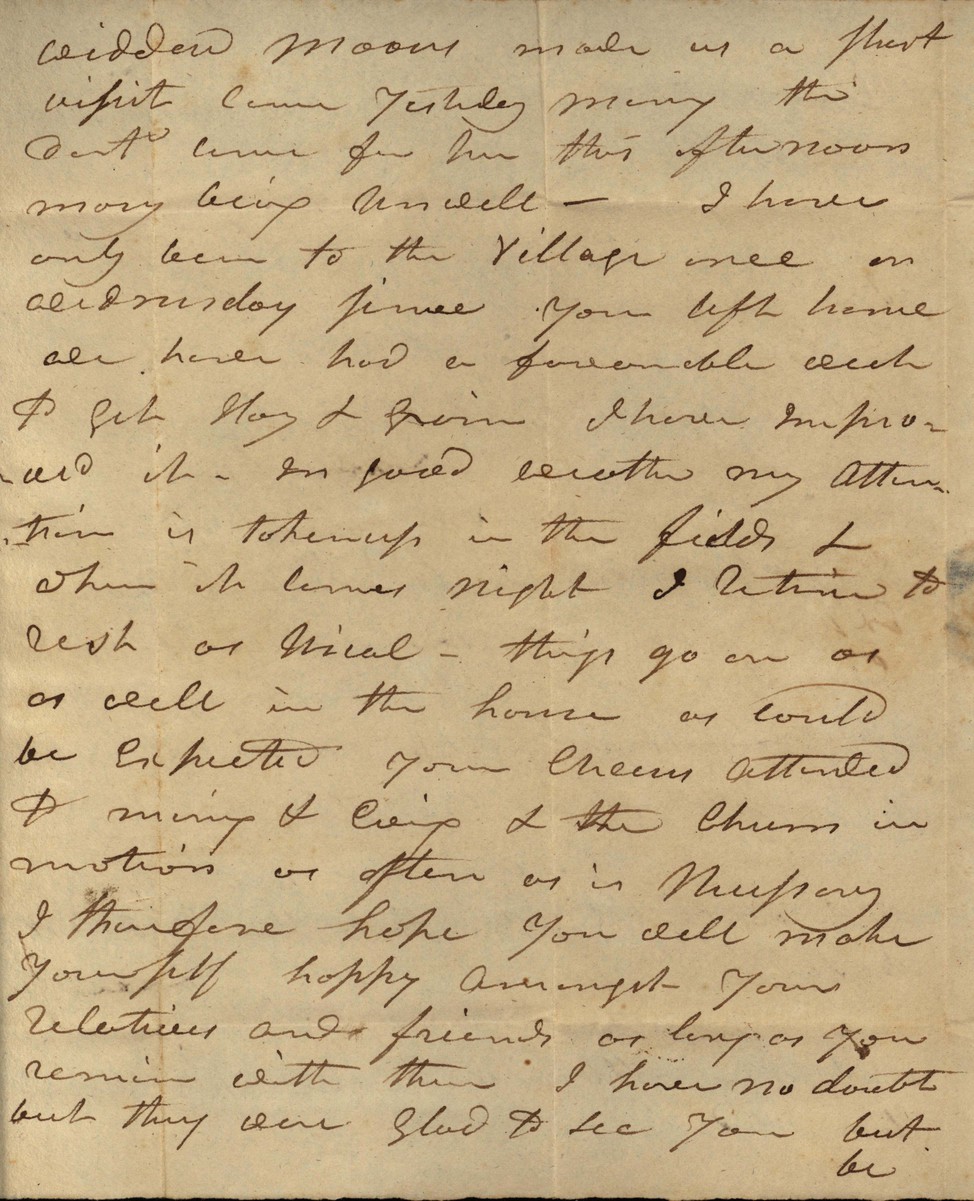 widdow Moors made us a short
visit came Yesterday many the
Doct came for her this afternoon
mary being Unwell — I have
only been to the Village once on
wednesday since you left home
we have had a favourable week
to get Hay & Grain I have Impro-
-ved it - In good weather my Atten-
-tion is taken up in the fields &
when it comes night I retire to
rest as Usual - things go on as
as well in the house as could
be Expected your Cheese attended
to & the Churn in
motion as often as is Necessary
I therefore hope you well make
yourself happy amongst your
relatives and friends as long as you
remain with them I have no doubt
but they were Glad to see you but
be